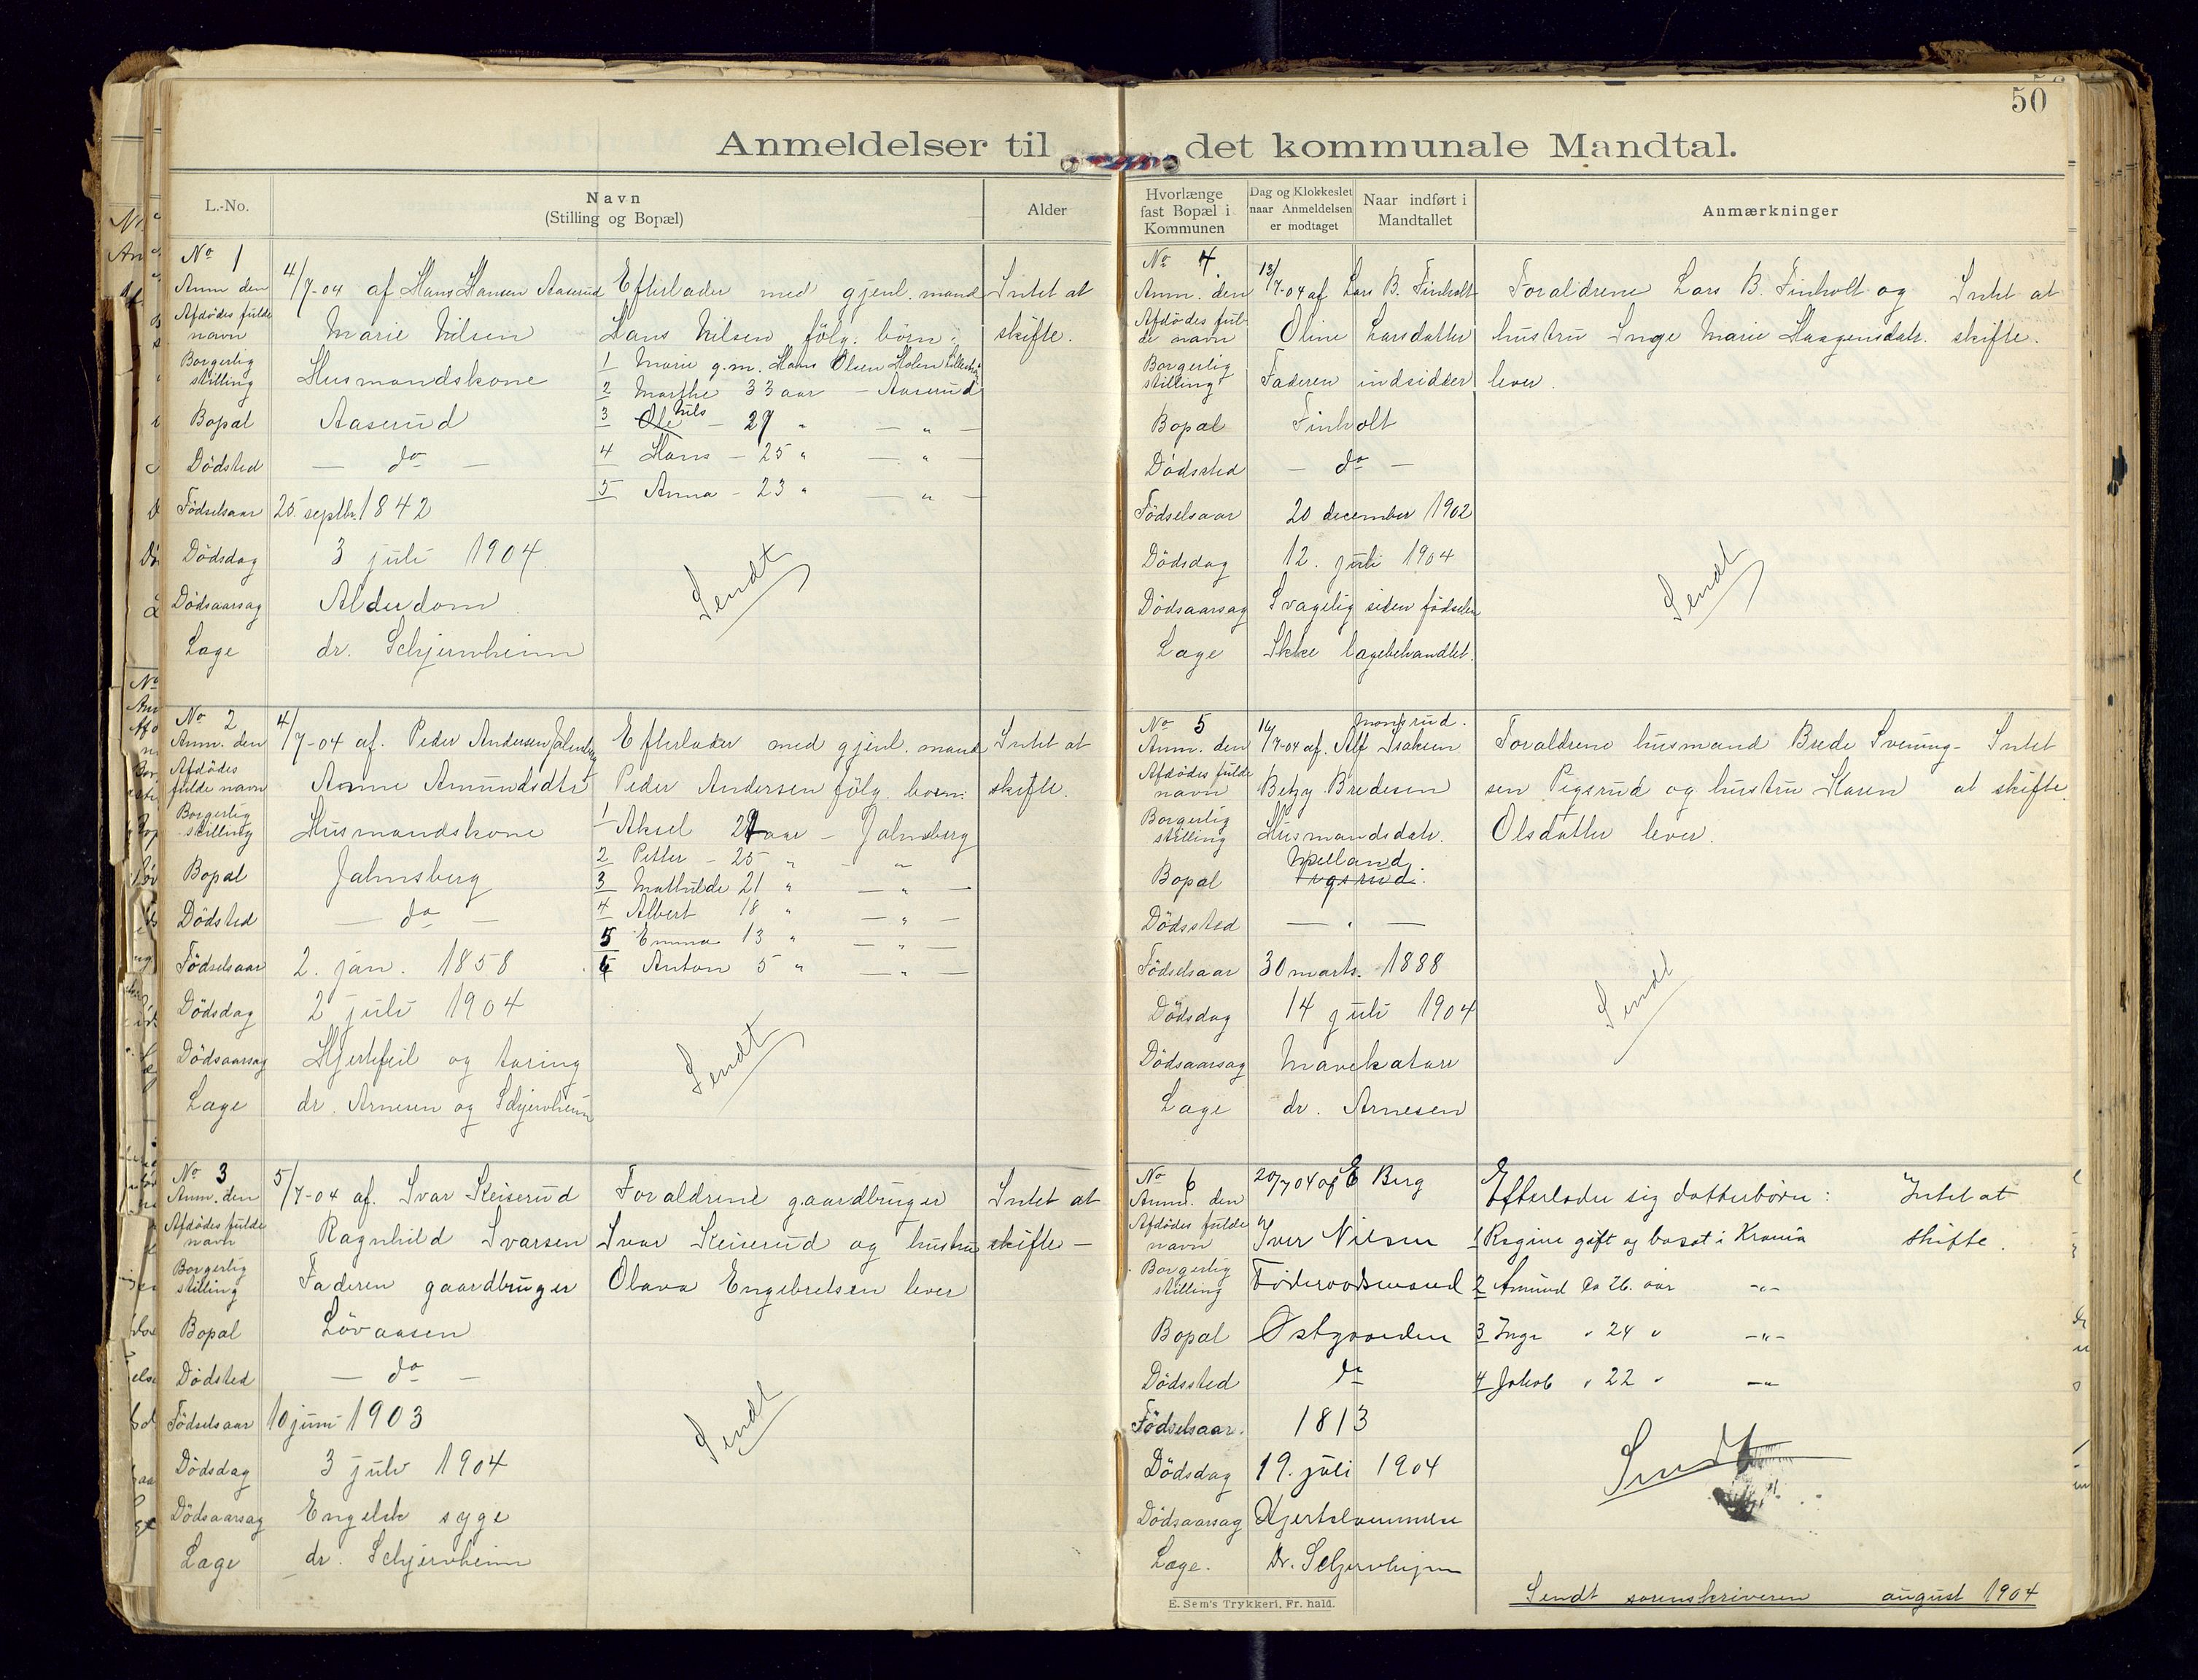 50
Anmeldelser til det kommunale Mandtal.
L.-No.
Navn
(Stilling og Bopæl)
Alder
Hvorlænge
fast Bopæl i
Kommunen
Dag og Klokkeslet
naar Anmeldelsen
er modtaget
Naar indført i
Mandtallet
Anmærkninger
No 1
Anm den 4/7-04 af Hans Hansen Aaserud Efterlader med gjenl. mand Intet at
Afdödes fulde
navn Marie Nilsen Hans Nilsen fölg. börn: skifte.
Borgerlig
stilling Husmandskone
1 Marie g.m. Hans Olsen Holen
2 Marthe 33 aar — Aaserud
Bopæl Aaserud
3 Ole Nils — 29 " — " —
4 Hans — 25 " — " —
Dödsted — do —
5 Anna — 23 " — " —
Födselsaar 25. septbr. 1842
Dödsdag 3 juli 1904.
Dödsaarsag Alderdom
Læge dr. Schjernheim
Sendt
No 2
Anm. den 4/7-04 af. Peder Andersen Jalmsberg Efterlader med gjenl. mand Intet at
Afdödes
fulde navn Anne Amundsdtr Peder Andersen fölg. börn: skifte.
Borgerlig
stilling Husmandskone
1 Aksel 29 aar — Jalmsberg
2 Petter — 25 " — "
Bopæl Jalmsberg
3 Mathilde 21 " — " —
4 Albert 18 " — " —
Dödsted — do —
5 Emma 13 " — " —
Födselsaar 2. jan. 1858
6 Anton 5 " — " —
Dödsdag 2 juli 1904
Dödsaarsag Hjertefeil og tæring
Læge dr. Arnesen og Schjernheim
Sendt
No 3
Anm. den 5/7-04 af. Ivar Keiserud Forældrene gaardbruger Intet at
Afdödes fulde
navn Ragnhild Ivarsen Ivar Keiserud og hustru skifte —
Borgerlig
stilling Faderen gaardbruger Olava Engebretsen lever
Bopæl Lövaasen
Dödsted — do —
Födselsaar 10 juni 1903
Dödsdag 3 juli 1904
Dödsaarsag Engelsk syge
Læge dr. Schjernheim
Sendt
No 4.
Anm. den 13/7-04 af Lars B. Finholt Forældrene Lars B. Finholt og Intet at
Afdödes ful-
de navn Oline Larsdatter hustru Inge Marie Haagensdatr. skifte.
Borgerlig
stilling Faderen indsidder lever.
Bopæl Finholt
Dödssted — do —
Födselsaar 20 december 1902
Dödsdag 12. juli 1904
Dödsaarsag Svagelig siden födselen
Læge Ikke lægebehandlet.
Sendt
No 5
Anm. den 16/7-04 af. Alf Isaksen Forældrene husmand Brede Svening- Intet
Afdödes fulde
navn Betzy Bredesen sen Pigsrud og hustru Karen at skifte
Borgerlig
stilling Husmandsdatr. Olsdatter lever.
Bopæl
Dödssted — " —
Födselsaar 30 marts. 1888
Dödsdag 14 juli 1904
Dödsaarsag Mavekatarr
Læge dr. Arnesen
Sendt
No 6
Anm. den 20/7 04 af E Berg Efterlader sig datterbörn: Intet at
Afdödes fulde
navn Iver Nilsen 1 Regine gift og bosat i Krania skifte.
Borgerlig
stilling Föderaadsmand 2 Amund ca 26. aar -"-
Bopæl Østgaarden 3 Inga " 24 " -"-
Dödssted do 4 Jakob " 22 " -"-
Födselsaar. 1813
Dödsdag 19. juli 1904
Dödsaarsag Hjertelammelse
Læge. Dr. Schjernheim
Sendt
E. Sem's Trykkeri, Fr. hald.
Sendt sorenskriveren august 1904